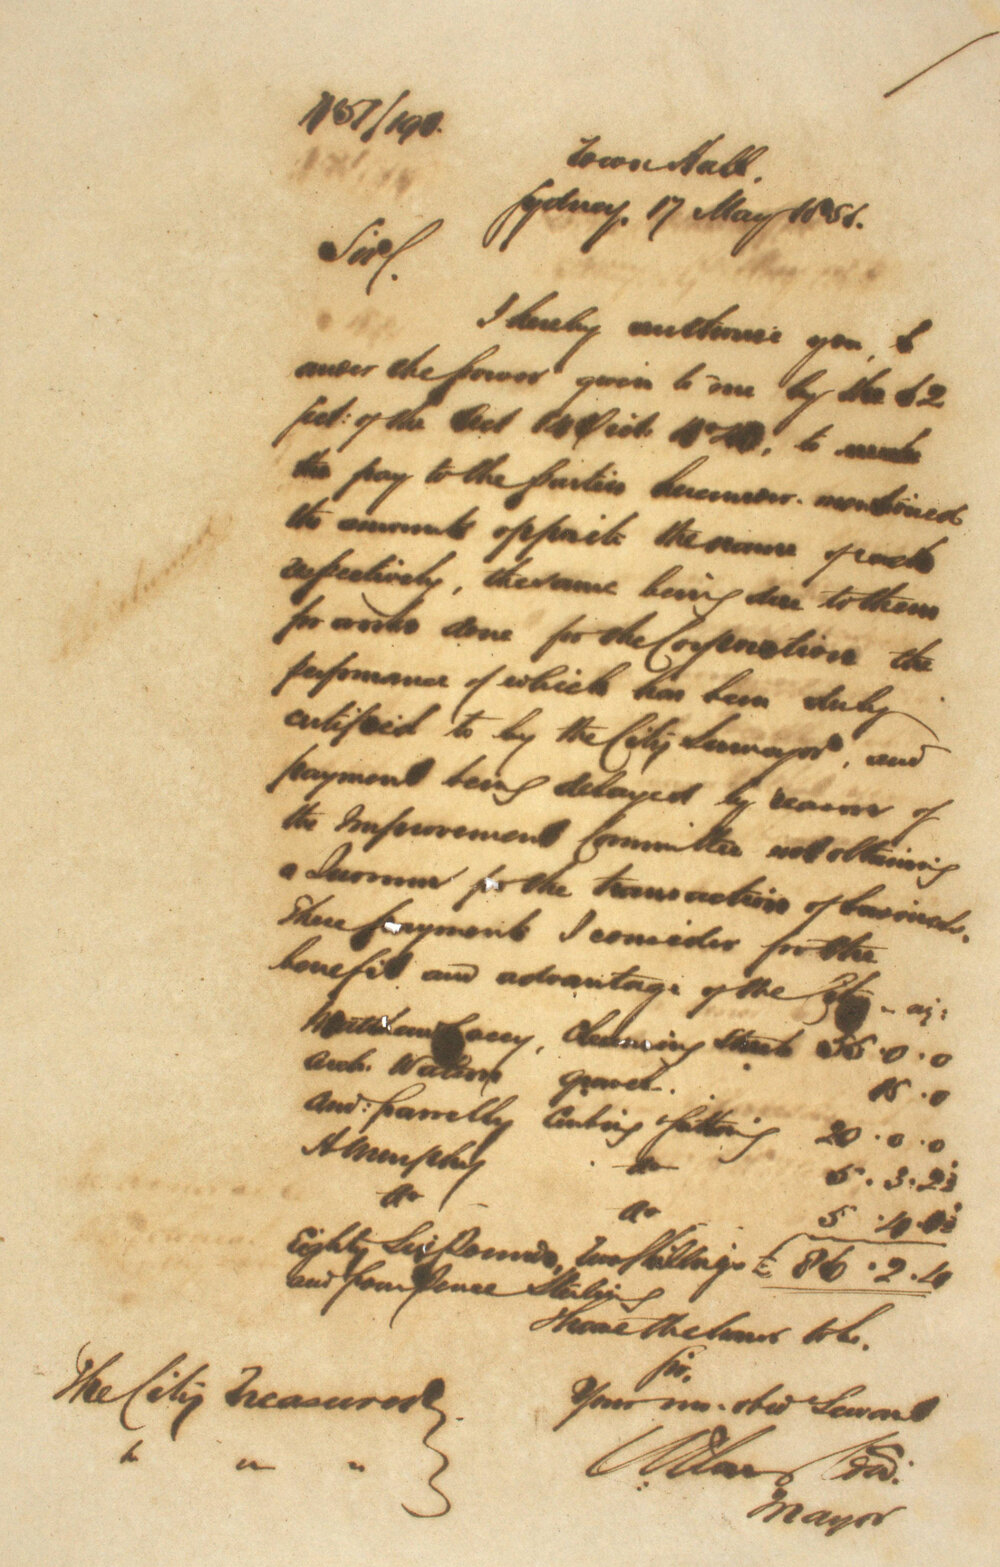 Town Hall.
Sydney. 17 May 1851.
Sir,
I hereby authorise you,
under the power given to me by the 62
Sect: of the Act 14 Vict. No 41, to make
the pay to the parties hereunder mentioned
the amounts opposite the name of each
respectively, the same being due to them
for works done for the Corporation the
performance of which has been duly
certified to by the City Surveyor, and
payment being delayed by reason of
the Improvement Committee not obtaining
a Quorum for the transaction of business.
These payments I consider for the
benefit and advantage of the City
Matthew Lacey, Cleansing Streets 55.0.0
Arch. Watson gravel. 15.0
And: Farrelly Curbing & Guttering 20.0.0
A Murphy do 5.3.2½
do do 5.4.1½
Eighty Six Pounds, Two Shillings £ 86.2.4
and four Pence Sterling
I have the honor to be.
Sir,
Your mo. obed Servant
Mayor
The City Treasurer
" " "